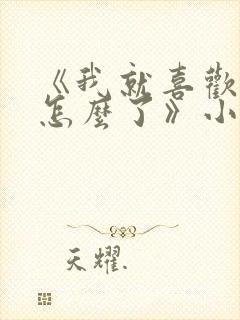 《我就喜歡
怎麼了》小
天耀.